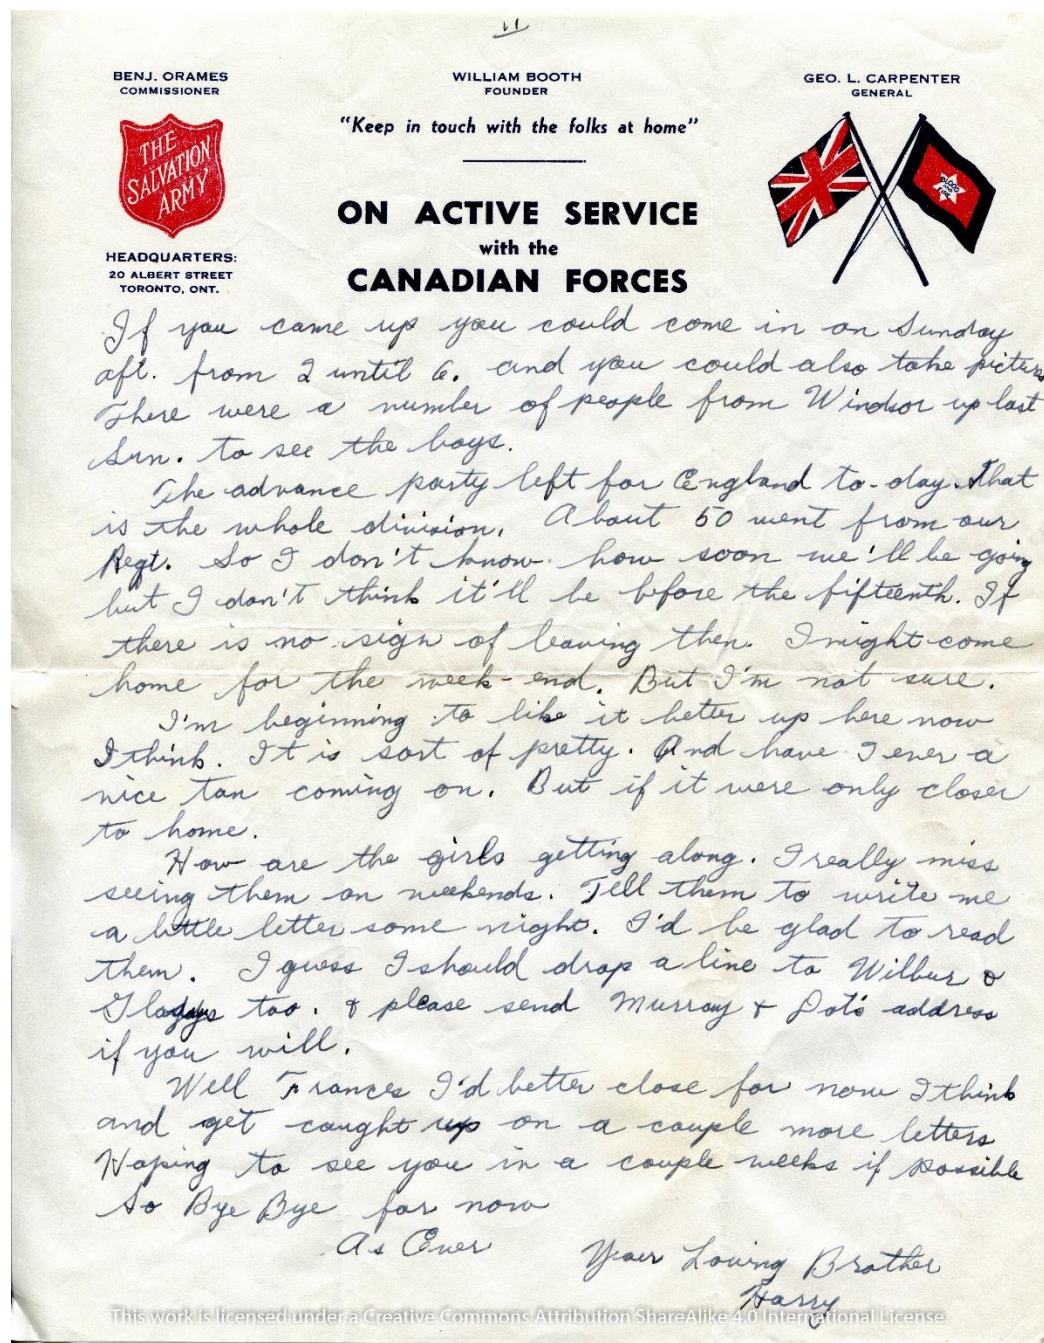 11
BENJ. ORAMES
COMMISSIONER
WILLIAM BOOTH
FOUNDER
GEO. L. CARPENTER
GENERAL
"Keep in touch with the folks at home"
THE
SALVATION
ARMY
BLOOD
AND
FIRE
ON ACTIVE SERVICE
with the
CANADIAN FORCES
HEADQUARTERS:
20 ALBERT STREET
TORONTO, ONT.
If you came up you could come in on Sunday
aft. from 2 until 6. and you could also take pictures
There were a number of people from Windsor up last
Sun. to see the boys.
The advance party left for England to-day. That
is the whole division. About 50 went from our
Regt. So I don't know how soon we'll be going
but I don't think it'll be before the fifteenth. If
there is no sign of leaving then I might come
home for the week-end. But I'm not sure.
I'm beginning to like it better up here now
I think. It is sort of pretty. And have I ever a
nice tan coming on. But if it were only closer
to home.
How are the girls getting along. I really miss
seeing them on weekends. Tell them to write me
a little letter some night. I'd be glad to read
them. I guess I should drop a line to Wilbur &
Gladys too. & please send Murray & Dot's address
if you will.
Well Frances I'd better close for now I think
and get caught up on a couple more letters
Hoping to see you in a couple weeks if possible
So Bye Bye for now
As Ever
Your Loving Brother
Harry
This work is licensed under a Creative Commons Attribution ShareAlike 4.0 International License.